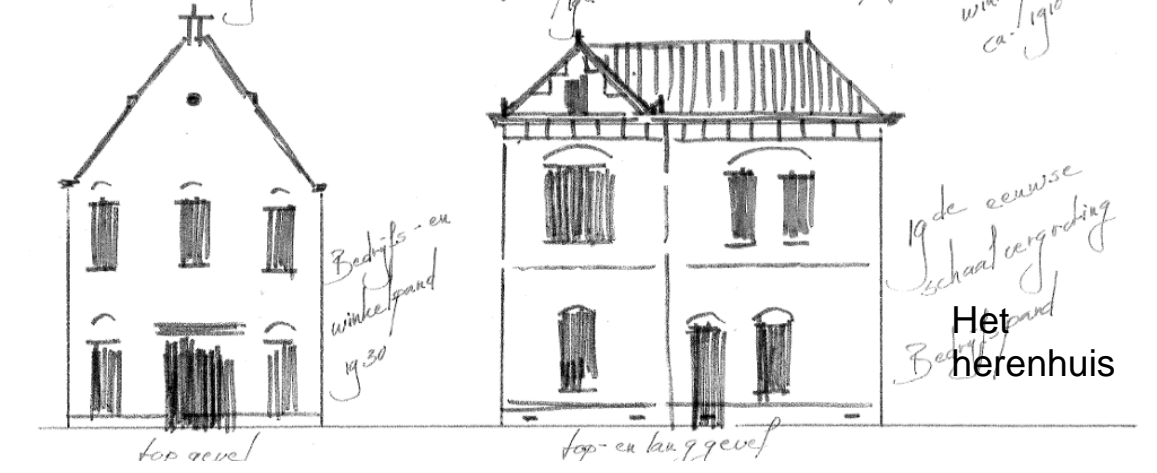 win
ca. 1910
Bedrijfs- en
winkelpand
1930
19de eeuwse
schaalvergroting
Bedrijfspand
Het
herenhuis
topgevel
top- en langgevel